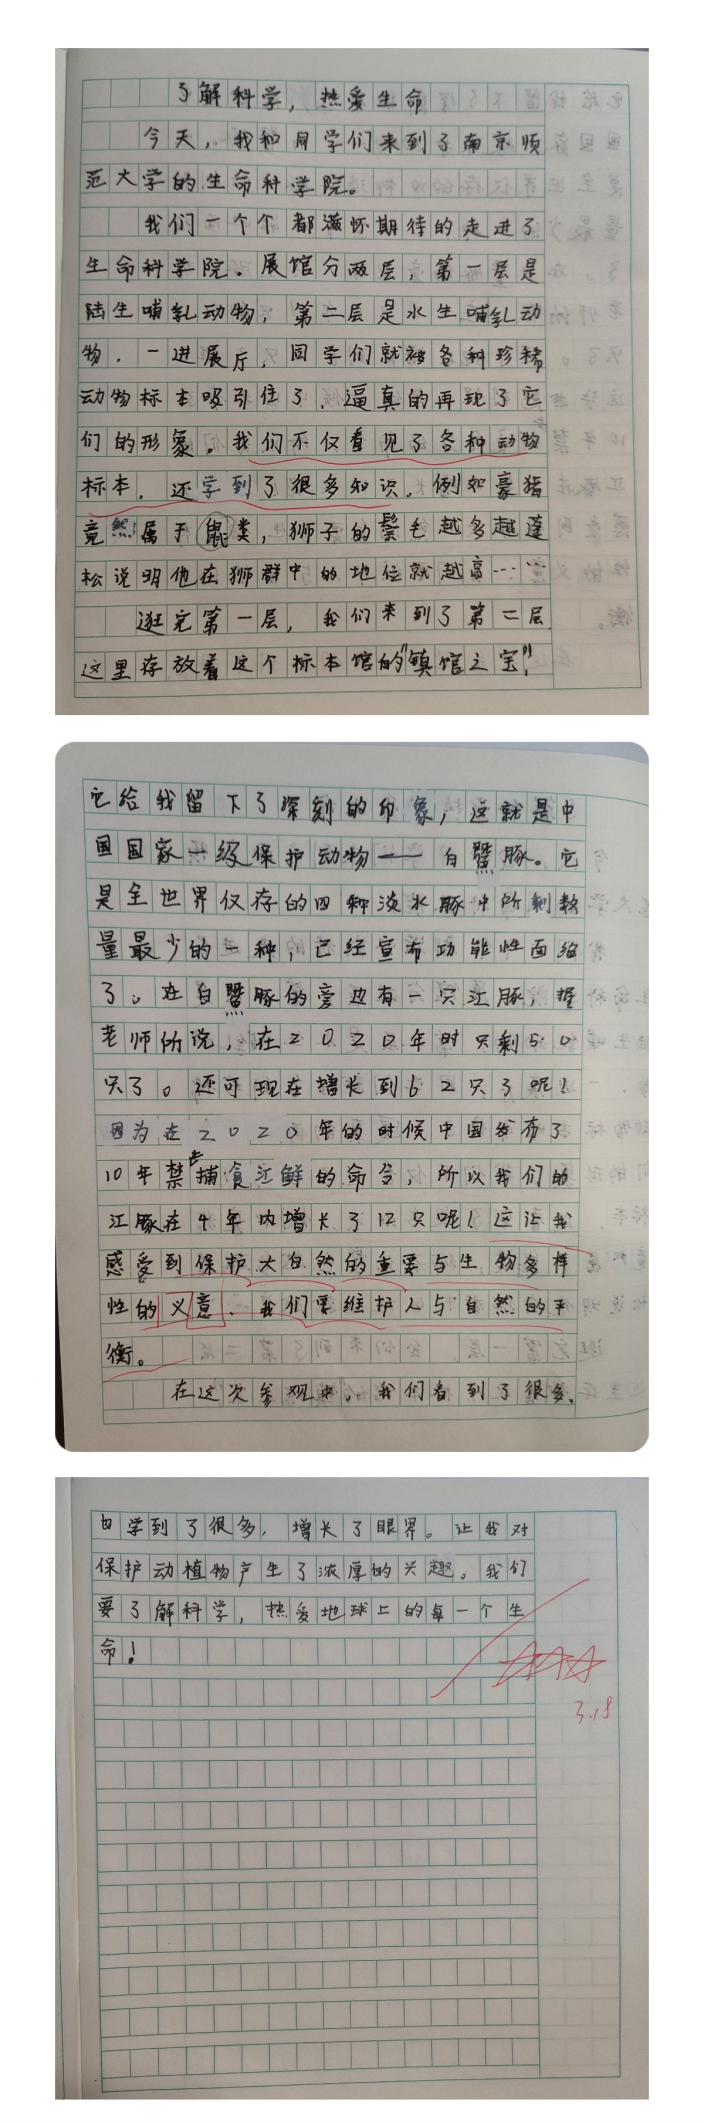 了解科学，热爱生命
今天，我和同学们来到了南京师
范大学的生命科学院。
我们一个个都满怀期待的走进了
生命科学院。展馆分两层，第一层是
陆生哺乳动物，第二层是水生哺乳动
物．一进展厅，同学们就被各种珍稀
动物标本吸引住了，逼真的再现了它
们的形象。我们不仅看见了各种动物
标本，还学到了很多知识。例如豪猪
竟然属于鼠类，狮子的鬃毛越多越蓬
松说明他在狮群中的地位就越高……
逛完第一层，我们来到了第二层．
这里存放着这个标本馆的“镇馆之宝”，
它给我留下了深刻的印象，这就是中
国国家一级保护动物——白鱀豚。它
是全世界仅存的四种淡水豚中所剩数
量最少的一种，已经宣布功能性面绝
了。在白鱀豚的旁边有一只江豚，据
老师所说，在2020年时只剩50
只了。还可现在增长到62只了呢！
因为在2020年的时候中国发布了
10年禁止捕食江鲜的命令，所以我们的
江豚在4年内增长了12只呢！这让我
感受到保护大自然的重要与生物多样
性的义意．我们要维护人与自然的平
衡。
在这次参观中，我们看到了很多，
也学到了很多，增长了眼界。让我对
保护动植物产生了浓厚的兴趣。我们
要了解科学，热爱地球上的每一个生
命！
3.18